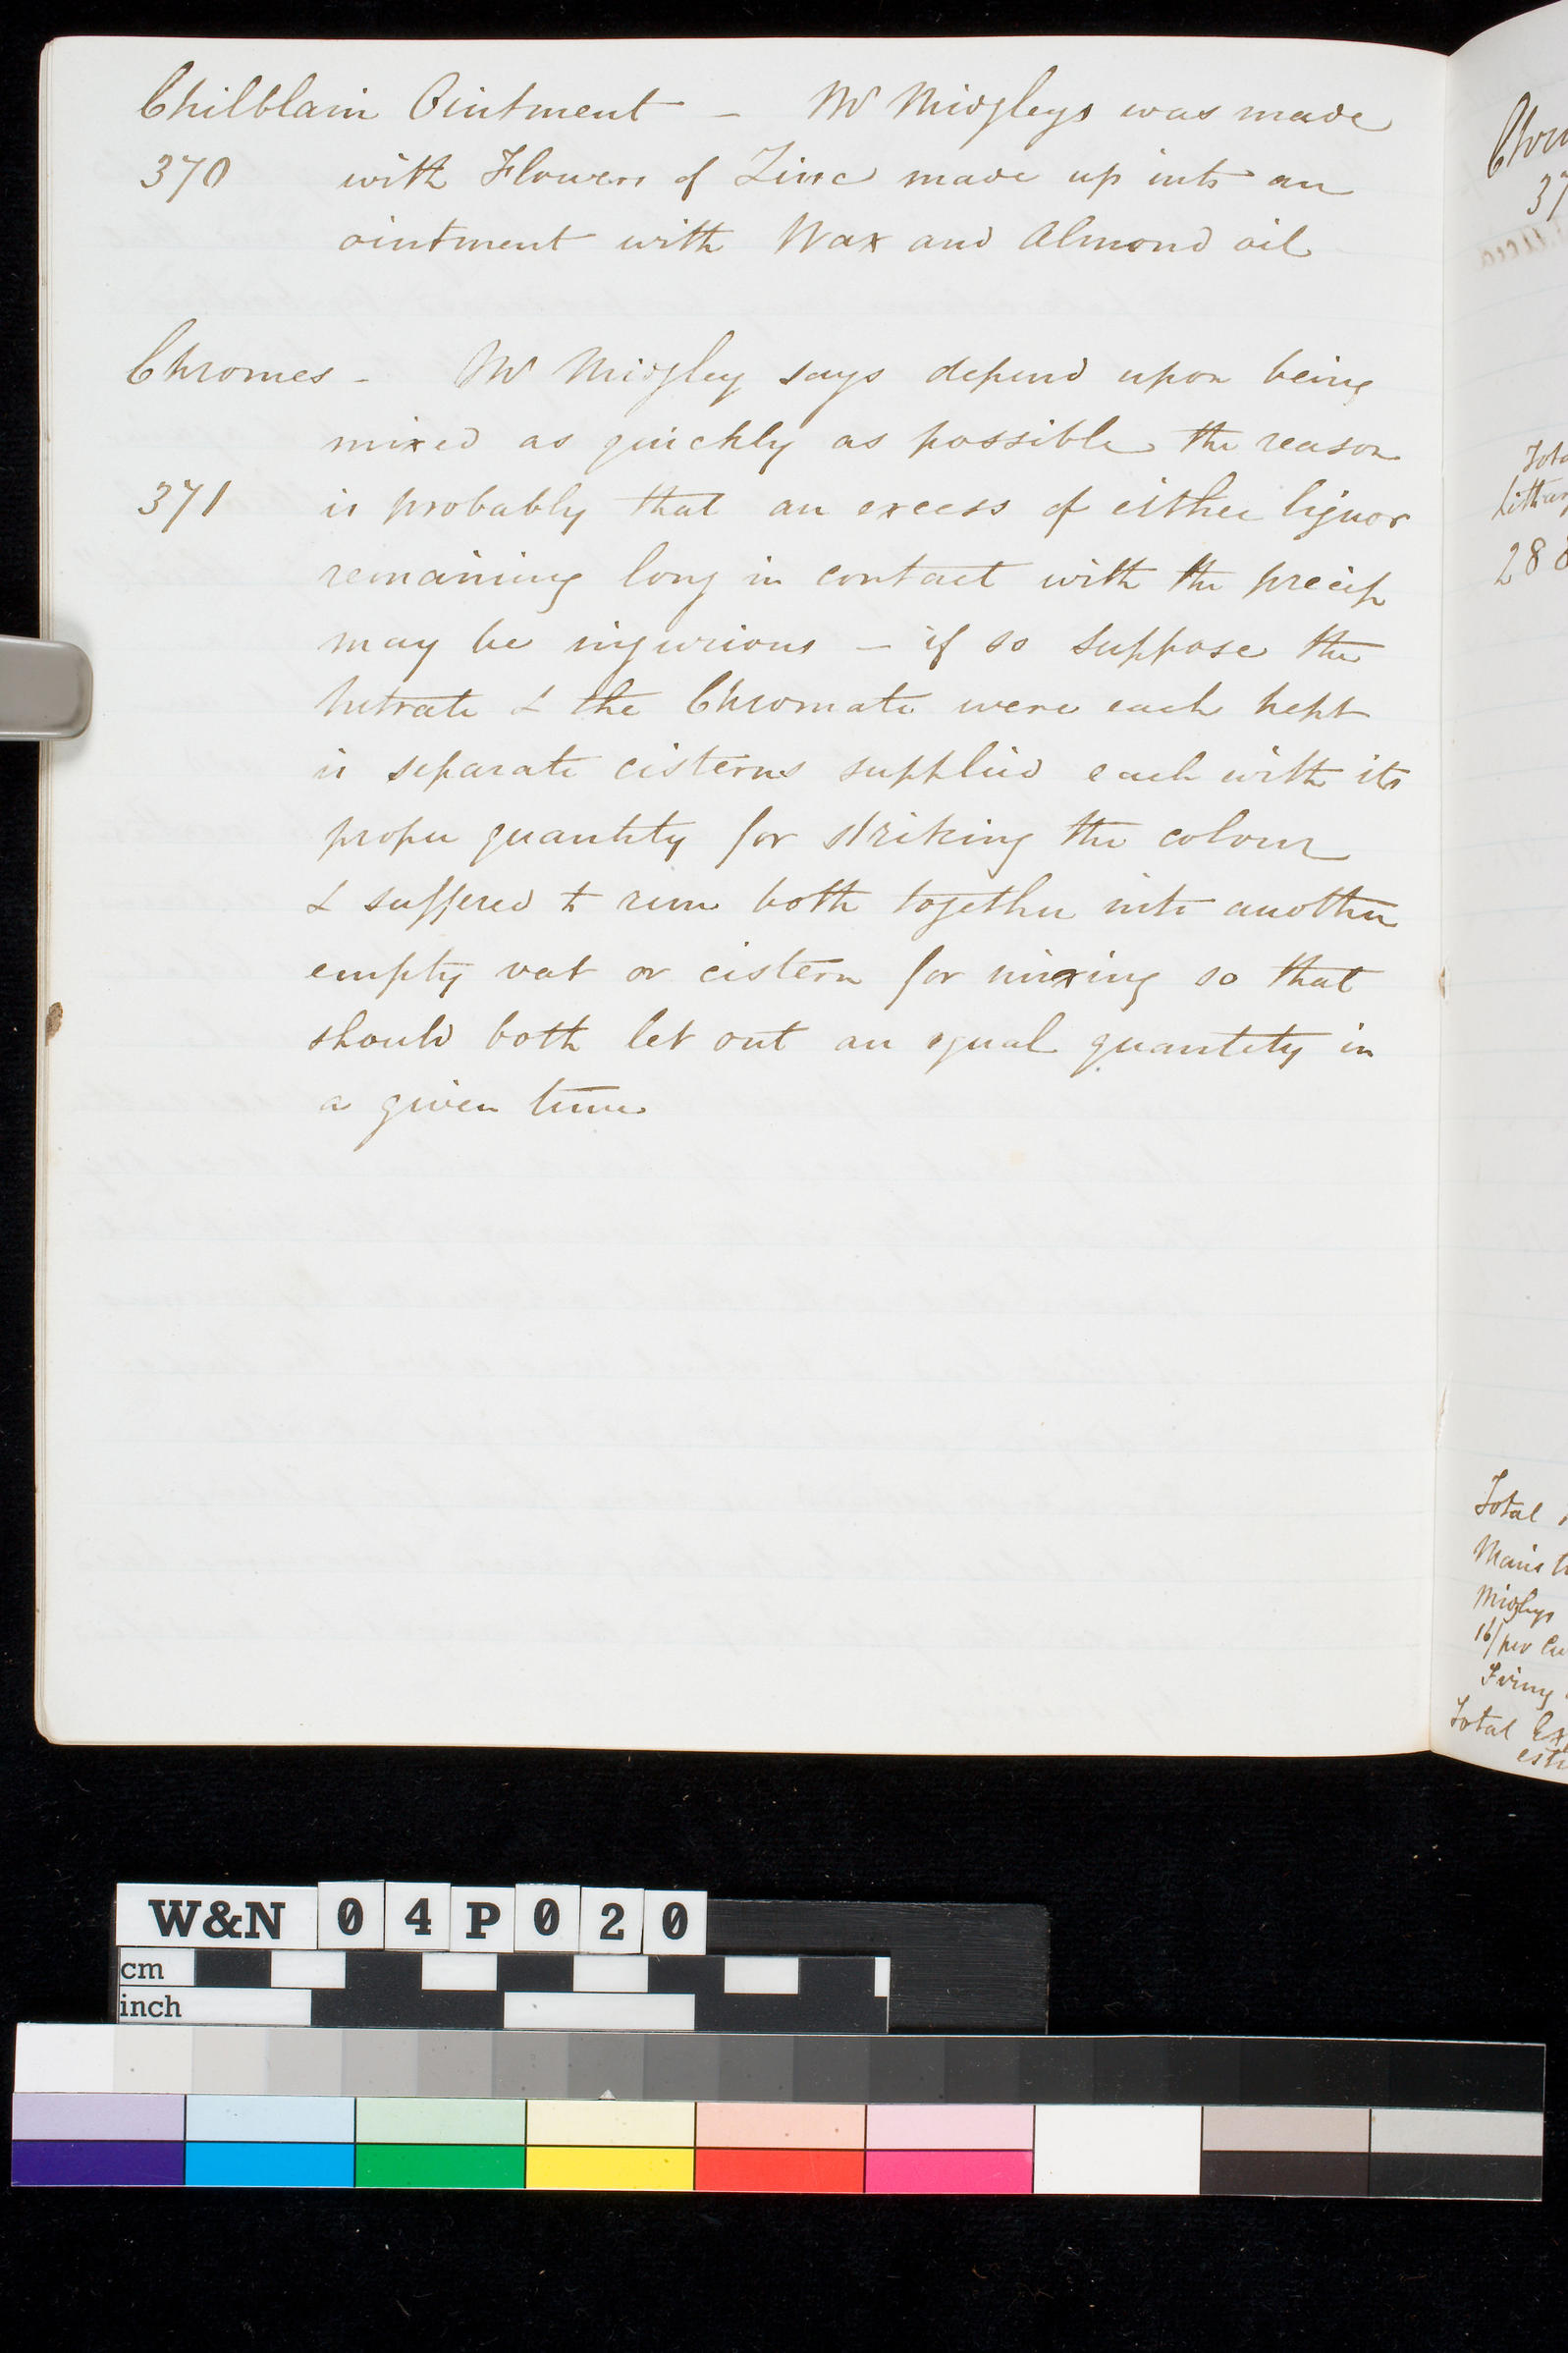 Chilblain Ointment – Mr Midgleys was made
370 with Flowers of Zinc made up into an
ointment with Wax and Almond oil
Chromes – Mr Midgley says depend upon being
mixed as quickly as possible the reason
371 is probably that an excess of either liquor
remaining long in contact with the precip
may be injurious – if so suppose the
Nitrate & the Chromate were each kept
in separate cisterns supplied each with its
proper quantity for striking the colour
& suffered to run both together into another
empty vat or cistern for mixing so that
should both let out an equal quantity in
a given time
37
28 8
Total
Midgleys
16/ per
Firing
Total Ex
W&N 04P020
cm
inch